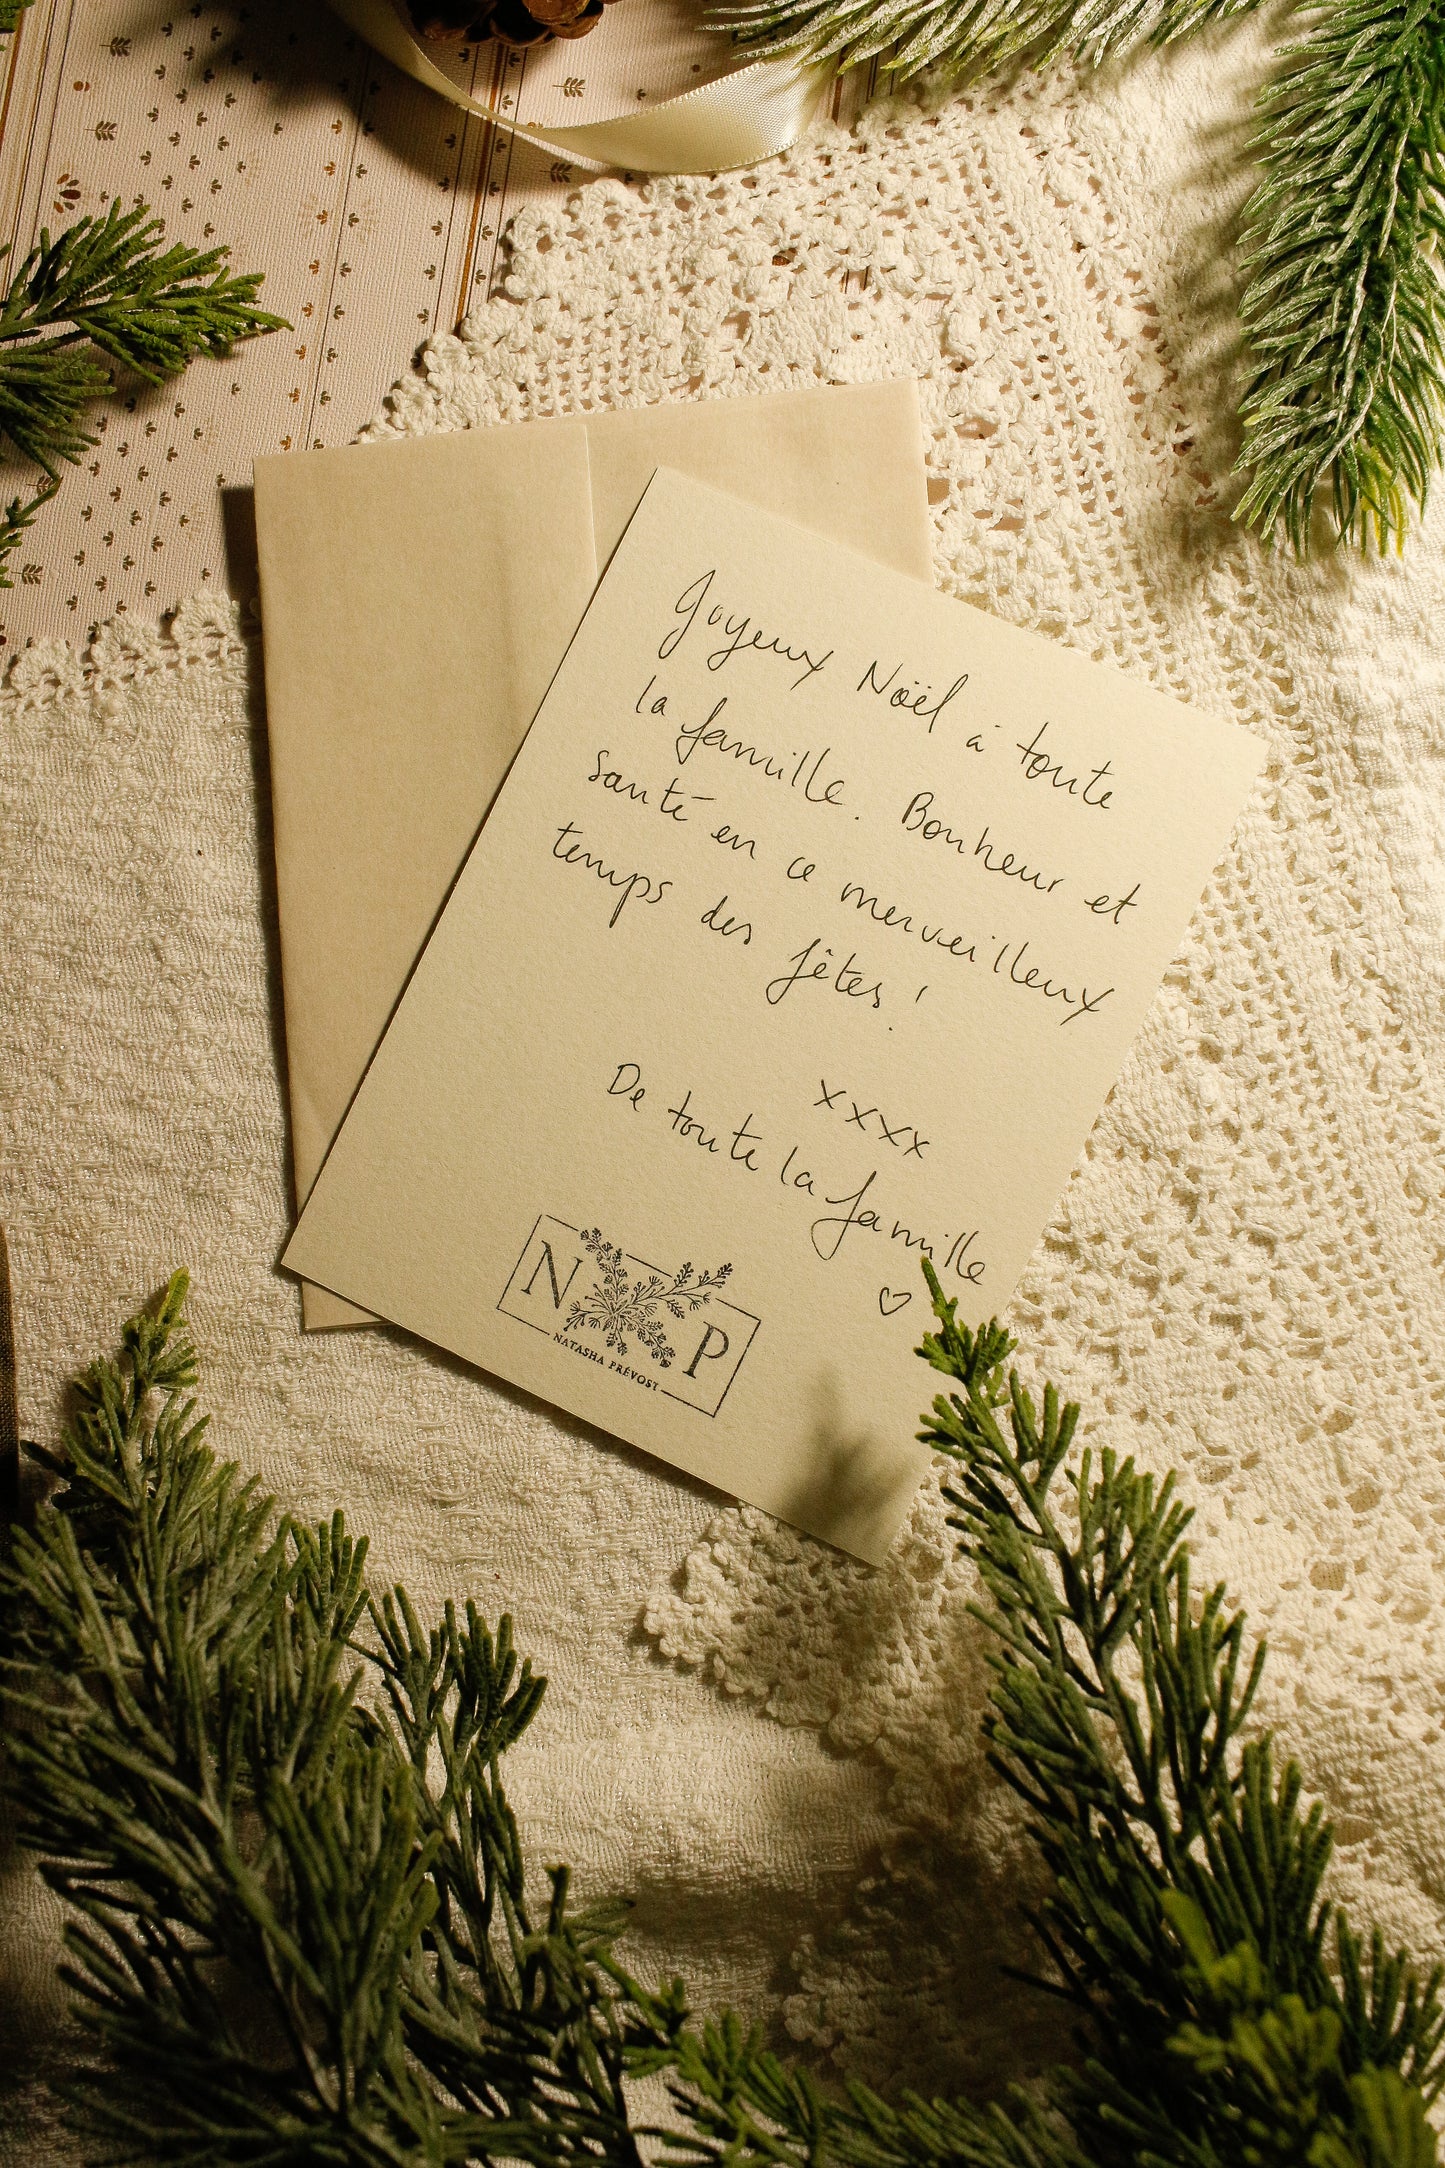 Joyeux Noël à toute
la famille. Bonheur et
santé en ce merveilleux
temps des fêtes !
xxxx
De toute la famille
♡
N P
NATASHA PRÉVOST